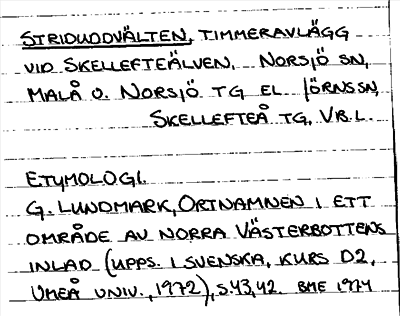 STRIDUDDVÄLTEN, TIMMERAVLÄGG
VID SKELLEFTEÄLVEN. NORSJÖ SN,
MALÅ O. NORSJÖ TG EL. JÖRNS SN,
SKELLEFTEÅ TG, VB. L.
ETYMOLOGI.
G. LUNDMARK, ORTNAMNEN I ETT
OMRÅDE AV NORRA VÄSTERBOTTENS
INLAD (UPPS. I SVENSKA, KURS D2,
UMEÅ UNIV., 1972), S. 43, 42. BME 1974